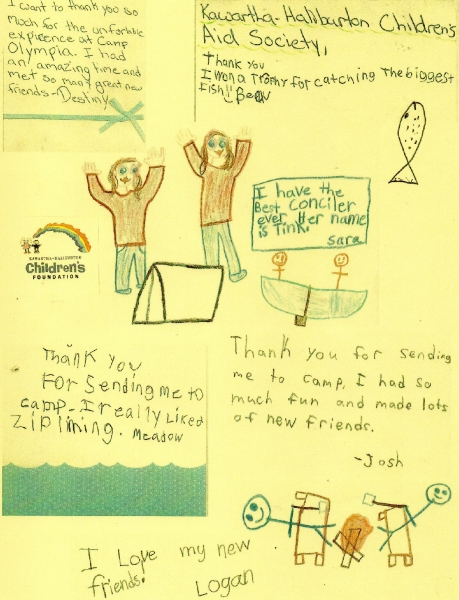 I want to thank you so
Much for the unforfable
expirence at Camp
Olympia. I had
an amazing time and
met so many great new
friends -Destiny
Kawartha-Haliburton Children's
Aid Society,
Thank you
I won a Trophy for catching The biggest
Fish!!
I have the
Best Conciler
ever Her name
is Tink.
Sara
KAWARTHA-HALIBURTON
Children's
FOUNDATION
Thank you
For Sending me to
camp. I really Liked
Ziplining. Meadow
Thank you for sending
me to camp. I had so
much fun and made lots
of new friends.
-Josh
I Love my new
friends. Logan